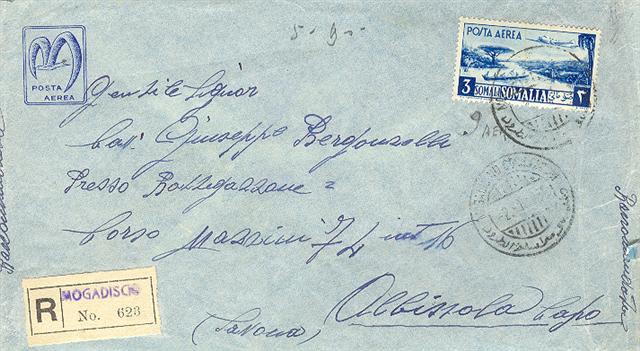 5-9-
POSTA
AEREA
POSTA AEREA
3 SOMALI SOMALIA ٣
Gentile Signor
Cav. Giuseppe Bergonzella
Presso Bottegazzone =
Corso Mazzini 7/4 int 16
Albissola Capo
(Savona)
R MOGADISCIO
No. 623
Raccomandata
Raccomandata